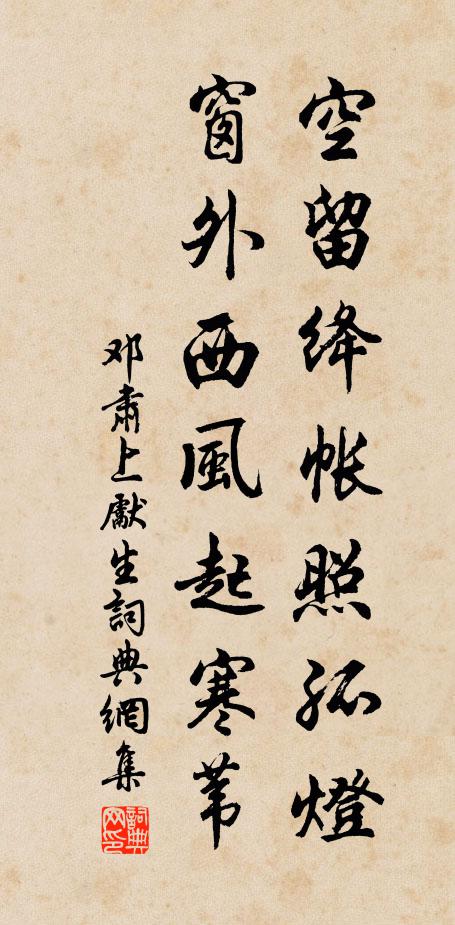 空留绛帐照孤燈
窗外西風起寒苇
邓肅上獻生詞典網集
詞典网印